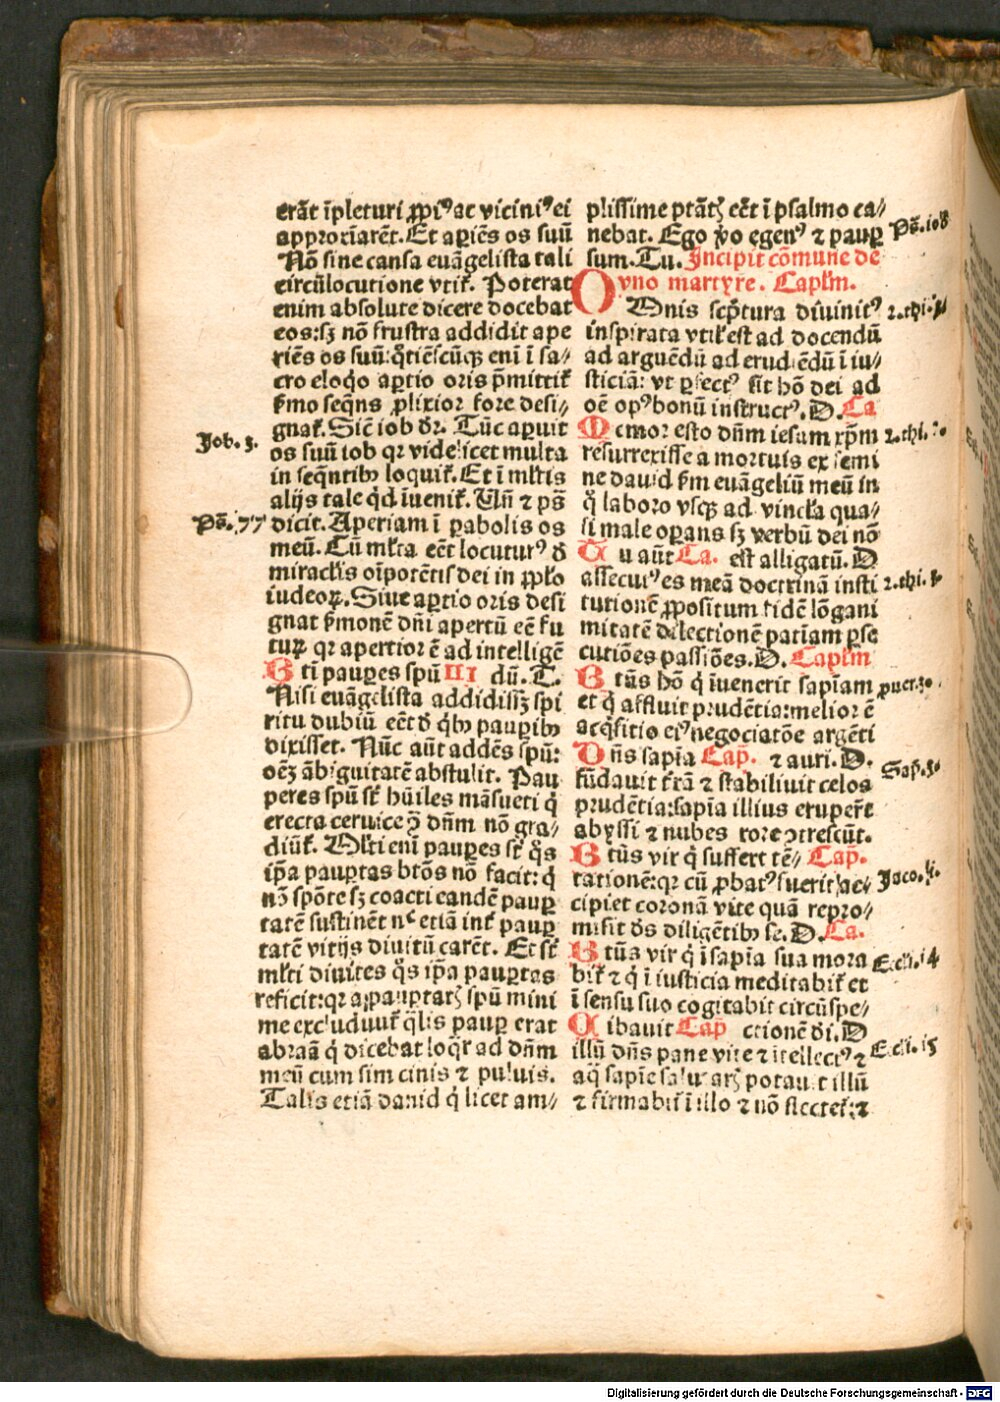 erãt ĩpleturi ꝓpiꝰ ac viciniꝰ ei
approxiarẽt. Et apiẽs os suũ
Nõ sine cansa euãgelista tali
circũlocutione vtit̃. Poterat
enim absolute dicere docebat
eos: sʒ nõ frustra addidit ape
riẽs os suũ: q̃tiẽscũqʒ eni ĩ sa⸗
cro eloq̇o aꝑtio oris p̃mittit̃
ẜmo seq̃ns ꝓlixior fore desi⸗
gnat̃. Sic̃ iob dr̃. Tũc aꝑuit
Job. 3.
os suũ iob qꝛ videlicet multa
in seq̃ntibꝰ loquit̃. Et ĩ ml̃tis
alijs tale q̇d ĩuenit̃. Vñ ⁊ pš
Ps̃. 77
dicit. Aperiam ĩ ꝑabolis os
meũ. Cũ ml̃ta eẽt locuturꝰ đ
miracl̃is oĩpotẽtis dei in ꝓpl̃o
iudeoꝝ. Siue aꝑtio oris desi
gnat ẜmonẽ dñi apertũ eẽ fu
tuꝝ qꝛ apertior ẽ ad intelligẽ
B ti pauꝑes spũ III dũ. T.
Nisi euãgelista addidissʒ spi
ritu dubiũ eẽt đ q̇bꝰ pauꝑibꝰ
dixisset. Nũc aũt addẽs spũ:
oẽʒ ãbiguitatẽ abstulit. Pau
peres spũ st̃ hũiles mãsueti q̇
erecta ceruice ꝯ̃ dñm nõ gra⸗
diũt̃. Ml̃ti eni pauꝑes st̃ q̃s
ip̃a pauꝑtas btõs nõ facit: q̇
nõ spõte sʒ coacti eandẽ pauꝑ
tatẽ sustinẽt nᶜ etiã int̃ pauꝑ
tatẽ vitijs diuitũ carẽt. Et st̃
ml̃ti diuites q̃s ip̃a pauꝑtas
reficit: qꝛ a pauꝑtatʒ spũ mini
me excluduut̃ q̃lis pauꝑ erat
abraã q̇ dicebat loq̃r ad dñm
meũ cum sim cinis ⁊ puluis.
Talis etiã dauid q̇ licet am⸗
plissime ptãtʒ eẽt ĩ psalmo ca⸗
nebat. Ego ꝟo egenꝰ ⁊ pauꝑ
Ps̃. 108
sum. Tu. Incipit cõmune de
vno martyre. Caplm̃.
Omnis scp̃tura diuinitꝰ
2. thi. 3
inspirata vtil̃ est ad docendũ
ad arguẽdũ ad erudiẽdũ ĩ iu⸗
sticiã: vt ꝑfectꝰ sit hõ dei ad
oẽ opꝰ bonũ instructꝰ. D. Ca
Memor esto dñm iesum xp̃m
2. thi. 2.
resurrexisse a mortuis ex semi
ne dauid ẜm euãgeliũ meũ in
q̊ laboro vsqʒ ad vincl̃a qua⸗
si male oꝑans sʒ verbũ dei nõ
Tu aũt Ca. est alligatũ. D
assecutꝰ es meã doctrinã insti
2. thi. 3
tutionẽ ꝓpositum fidẽ lõgani
mitatẽ dilectionẽ patiam ꝑse
cutiões passiões. D. Caplm̃
Btũs hõ q̇ ĩuenerit sapiam
puer. 3.
et q̇ affluit prudẽtia: melior ẽ
acq̇sitio eiꝰ negociatõe argẽti
Dñs sapia Cap̃. ⁊ auri. D.
Sap. 3.
fũdauit t̃rã ⁊ stabiliuit celos
prudẽtia: sapia illius eruper̃t
abyssi ⁊ nubes rore ꝯtrescũt.
Btũs vir q̇ suffert tẽ⸗ Cap̃.
tationẽ: qꝛ cũ ꝓbatꝰ fuerit ac⸗
Jaco. i.
cipiet coronã vite quã repro⸗
misit ds̃ diligẽtibꝰ se. D. Ca.
Btũs vir q̇ ĩ sapia sua mora
Ecci. 14
bit̃ ⁊ q̇ ĩ iusticia meditabit̃ et
ĩ sensu suo cogitabit circũspe⸗
Cibauit Cap ctionẽ di. D
Ecci. 15
illũ dñs pane vite ⁊ ĩtellectꝰ ⁊
aq̃ sapie salutarʒ potauit illũ
⁊ firmabit̃ ĩ illo ⁊ nõ flectet̃: ⁊
Digitalisierung gefördert durch die Deutsche Forschungsgemeinschaft - DFG